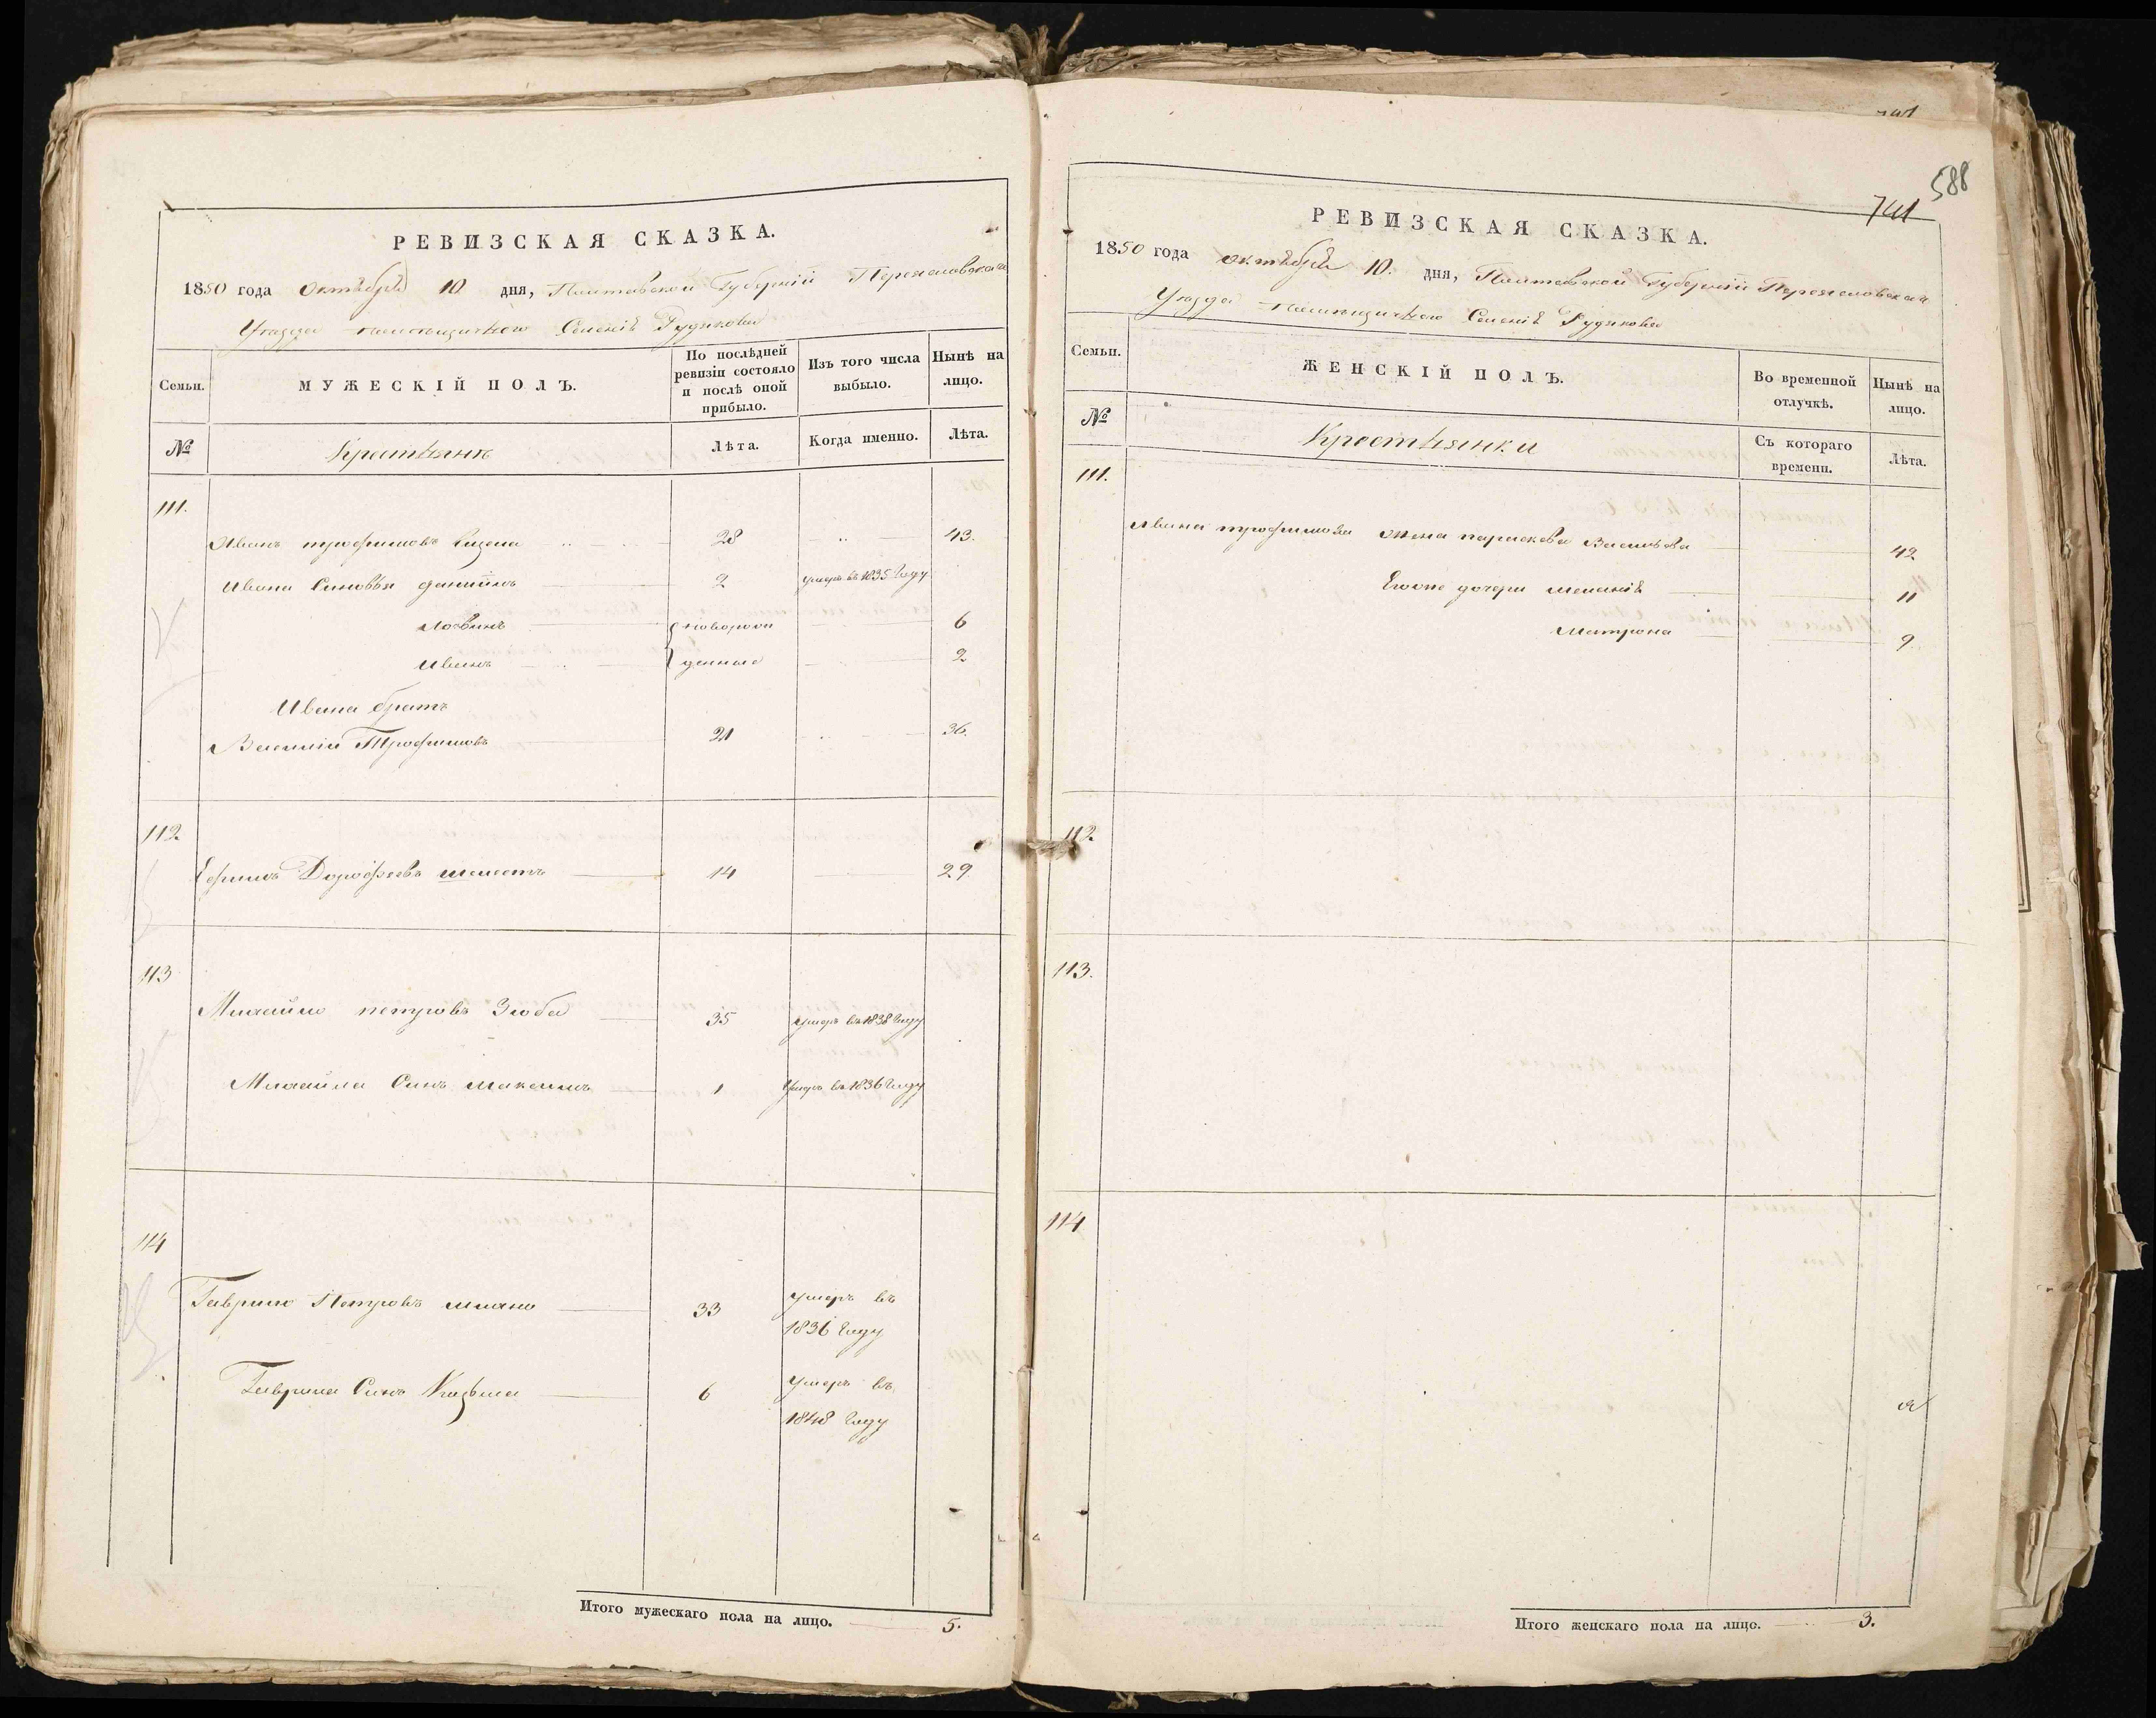 РЕВИЗСКАЯ СКАЗКА.
1850 года Октября 10 дня, Полтавской Губерніи Переяславскаго
Уезда помѣщичьего Селенія Рудякова
Семьи.
МУЖЕСКІЙ ПОЛЪ.
По послѣдней ревизіи состояло и послѣ оной прибыло.
Изъ того числа выбыло.
Нынѣ на лицо.
№
Крестьянъ
Лѣта.
Когда именно.
Лѣта.
111.
Иванъ трофимовъ 28 43.
Ивана Синовья данiилъ 2 умеръ въ 1835 Году
Логвинъ новорож 6
Иванъ денные 2
Ивана братъ
Василий Трофимовъ 21 36.
112.
Ефимъ Дорофеевъ шелестъ 14 29.
113
Михайло петровъ Зюба 35 умеръ въ 1838 Году
Михайла Синъ Максимъ 1 Умеръ въ 1836 Году
114
Гаврило Петровъ 33 умеръ въ
1836 Году
Гаврила Синъ Козьма 6 Умеръ въ
1848 Году
Итого мужескаго пола на лицо. 5.
588
741
РЕВИЗСКАЯ СКАЗКА.
1850 года октября 10. дня, Полтавской Губерніи Переяславскаго
Уезда помѣщичьего Селенія Рудякова
Семьи.
ЖЕНСКІЙ ПОЛЪ.
Во временной отлучкѣ.
Нынѣ на лицо.
№
Крестьянки
Съ котораго времени.
Лѣта.
111.
Ивана трофимова жена параскева Васильева 42
Егоже дочери меланія 11
Матрона 9.
112.
113.
114
Итого женскаго пола на лицо. 3.